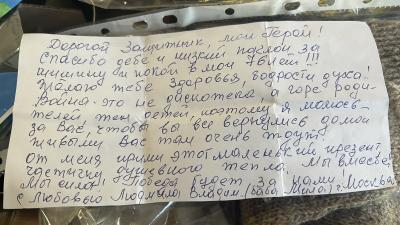 Дорогой Защитник, мой Герой!
Спасибо тебе и низкий поклон за
тишину и покой в мои 76 лет!!!
Желаю тебе Здоровья, бодрости духа!
Война - это не дискотека, а горе роди-
телей, жен, детей, поэтому я молюсь
за Вас, чтобы вы все вернулись домой
живыми Вас там очень ждут.
от меня прими этот маленький презент,
частичку душевного тепла. Мы вместе,
Мы сила! Победа будет за нами!
с Любовью Людмила Владим. (баба Мила) г. Москва